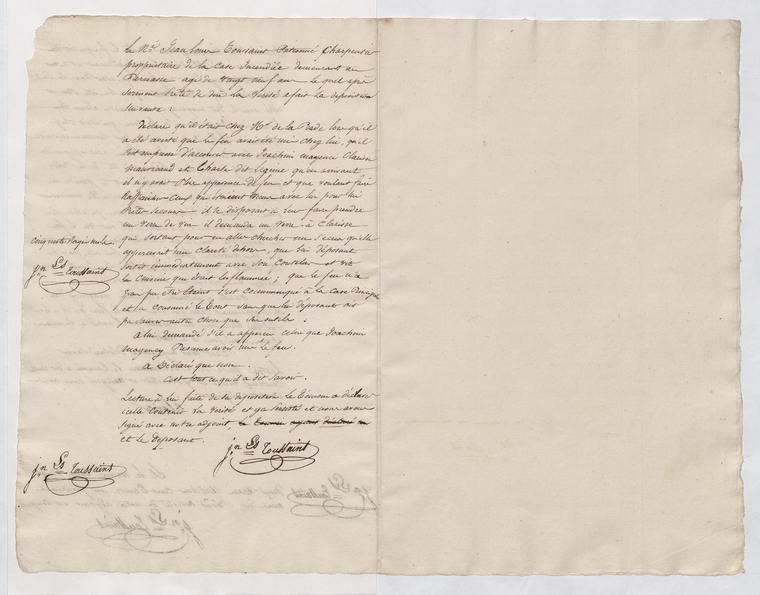 Le Nd. Jean louis Toussaint Charpentier
propriétaire de la Case Incendiée demeurant au
Parnasse agé de vingt neuf ans le quel après
serment Prêté de dire la vérité a fait la déposition
suivante :
Déclare qu'il était chez Mr. de la Prade lors qu'il
a été averti que le feu avait été mis chez lui, qu'il
s'est empressé d'accourir avec Joachim mayencé Clairon
et Charle dit qu'en arrivant
il n'y avait Plus apparence de feu et que voulant faire
Raffraichir Ceux qui étoient venus avec lui pour lui
Prêter secours il se disposait à leur faire prendre
un verre de vin il demanda un verre à Clairon
qui sortant pour en aller chercher un s'ecria qu'elle
appercevait une Clareté dehors, que lui déposant
sortit immédiatement avec son Coutelas et vit
la Cuisine qui était Enflammée ; que le feu n'a
pas pu être Eteint s'est Communiqué à la Case Principale
et a Consumé le Tout sans que lui déposant ait
pu sauver autre chose que ses outils.
A lui demandé s'il a apperçu celui que Joachim
mayency Présume avoir mis le feu.
A Déclaré que non.
C'est tout ce qu'il a dit savoir.
Lecture à lui faite de sa déposition le Témoin a déclaré
icelle Contenir la vérité et y a Persisté et nous avons
signé avec notre adjoint, le Témoin ayant déclaré ne
et le déposant.
Cinq mots rayés nuls.
jn. Ls Toussaint
jn. Ls Toussaint
jn. Ls Toussaint